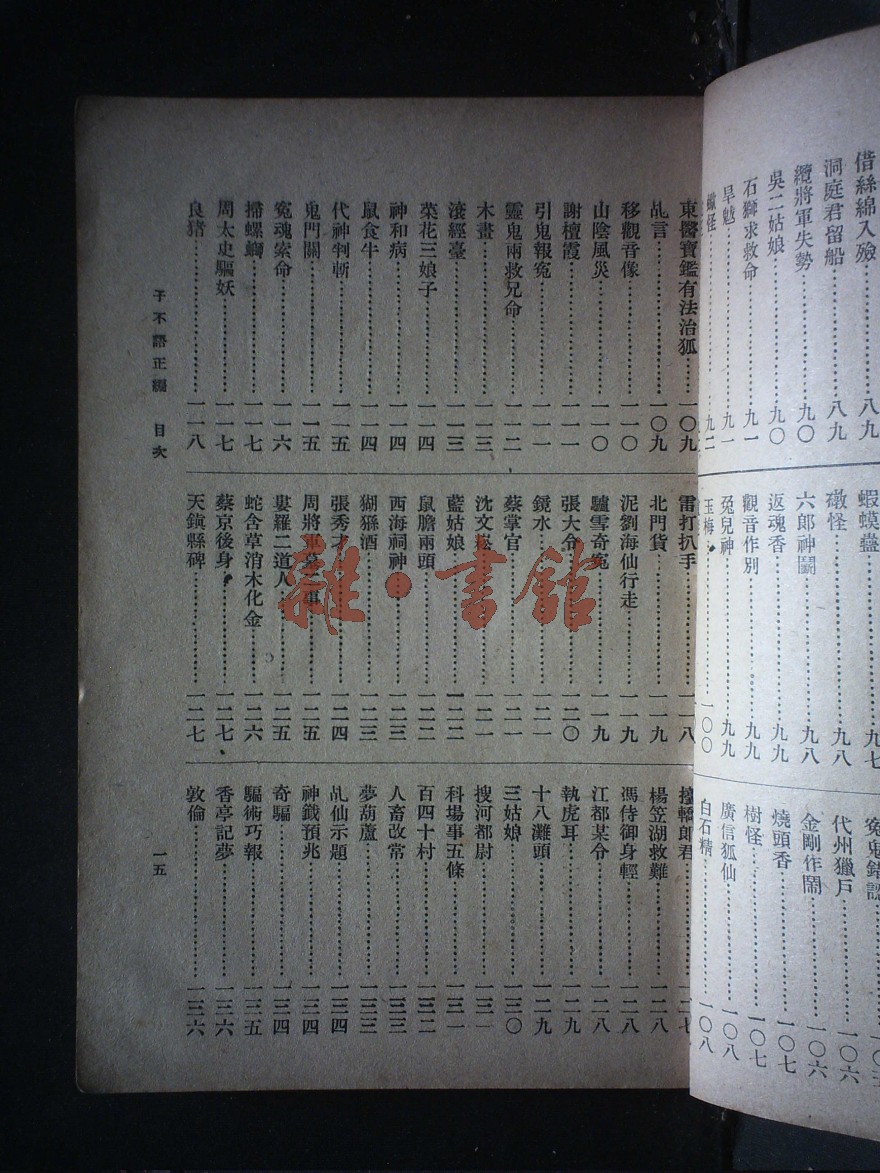 借絲綿入殮……八九
洞庭君留船……八九
纜將軍失勢……九〇
吳二姑娘……九〇
石獅求救命……九一
旱魃……九一
蠍怪……九二
蝦蟆蠱……九七
礅怪……九八
六郎神鬭……九八
返魂香……九九
觀音作別……九九
兔兒神……九九
玉梅……一〇〇
冤鬼錯認
代州獵戶……一〇六
金剛作鬧……一〇六
燒頭香……一〇七
樹怪……一〇七
廣信狐仙……一〇八
白石精……一〇八
東醫寶鑑有法治狐……一〇九
乩言……一〇九
移觀音像……一一〇
山陰風災……一一〇
謝檀霞……一一一
引鬼報冤……一一一
靈鬼兩救兄命……一一二
木畫……一一三
滾經臺……一一三
菜花三娘子……一一四
神和病……一一四
鼠食牛……一一四
代神判斬……一一五
鬼門關……一一五
冤魂索命……一一六
掃螺螄……一一七
周太史驅妖……一一七
良豬……一一八
雷打扒手……一一八
北門貨……一一九
泥劉海仙行走……一一九
驢雪奇冤……一一九
張大令……一二〇
鏡水……一二一
蔡掌官……一二一
沈文崧……一二一
藍姑娘……一二二
鼠膽兩頭……一二二
西海祠神……一二三
猢猻酒……一二三
張秀才……一二四
周將軍墓二事……一二五
婁羅二道人……一二五
蛇含草消木化金……一二六
蔡京後身……一二七
天鎮縣碑……一二七
擡轎郎君……一二七
楊笠湖救難……一二八
馮侍御身輕……一二八
江都某令……一二八
執虎耳……一二九
十八灘頭……一二九
三姑娘……一三〇
搜河都尉……一三一
科場事五條……一三一
百四十村……一三二
人畜改常……一三三
夢葫蘆……一三三
乩仙示題……一三四
神籤預兆……一三四
奇騙……一三四
騙術巧報……一三五
香亭記夢……一三六
敦倫……一三六
子不語正編 目次
一五
雜·書館